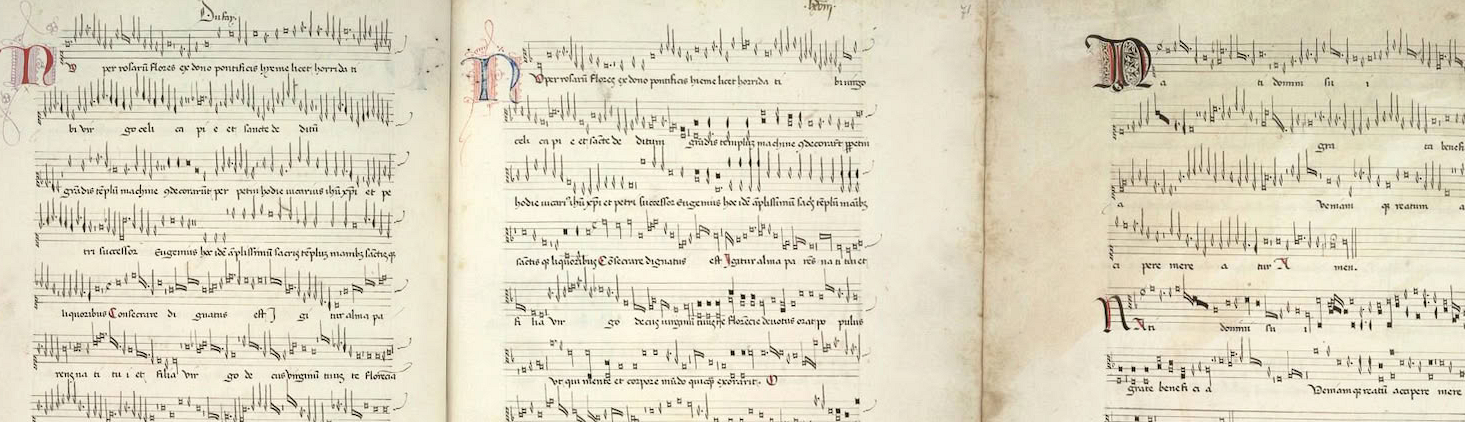 Dufay.
per rosarū flores ex dono pontificis hyeme licet horrida ti
bi vir go celi ca pi e et sancte de ditū
grādis tēplū machine ꝯdecorarūt per petuī hodie vicarius ihū xp̄i et pe
tri successor Eugenius hoc idē āplissimū sacris tēplū manib⁊ sāctis q⁊
liquoribus Consecrare di gnatus est J gi tur alma pa
rens na ti tu i et filia vir go de cus virginū tuus te florēcia
Vper rosarū flores ex dono pontificis hieme licet horrida ti bi virgo
celi ca pi e et sācte de ditum grādis templū machine ꝯdecorārt ꝑpetui
hodie vicari⁹ ihū xp̄i et petri successor Eugenius hoc idē āplissimū sac̄ templū manib⁊
sāctis q⁊ liquoribus Cōsecrare dignatus est Jgitur alma pa rēs na ti tui et
fi lia vir go decus virginū tuus te florēcie devotus orat po pulus
Vt qui mente et corpore mūdo quicq̄ exorarit. O
a ti domini su i
gra ta benefi
a Veniam q reatum a
ci pere mere a tur A men.
Nati domini su i
grate benefi ci a Veniam q reatū accipere mere